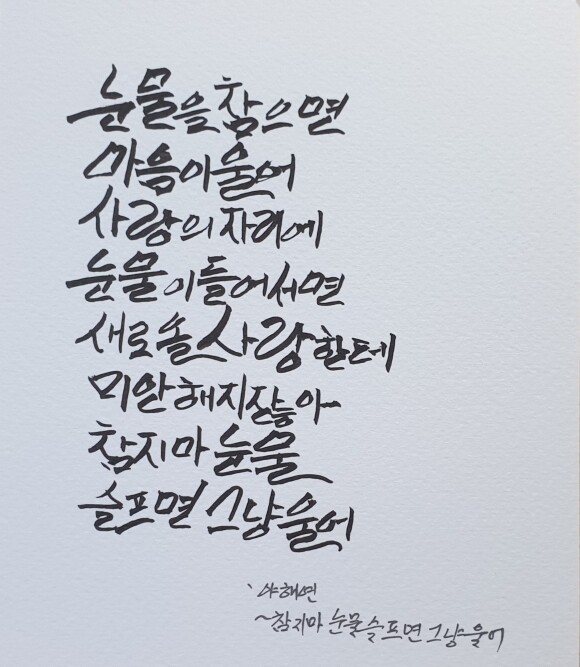 눈물을 참으면
마음이 울어
사랑의 자리에
눈물이 들어서면
새로 올 사랑한테
미안해지잖아~
참지마 눈물
슬프면 그냥 울어
야해연
~참지마 눈물 슬프면 그냥 울어